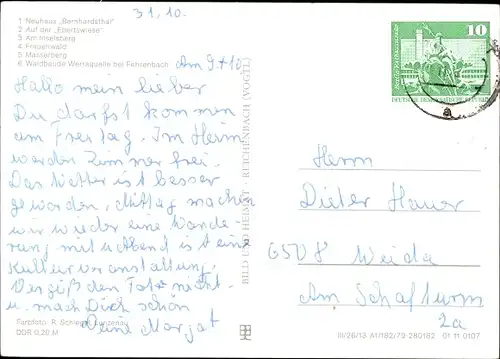 31.10.
1 Neuhaus „Bernhardsthal"
2 Auf der „Ebertswiese"
3 Am Inselsberg
4 Frauenwald
5 Masserberg
6 Waldbaude Werraquelle bei Fehrenbach
Am 9+10
Hallo mein lieber
Du darfst kommen
am Freitag. Im Heim
werden Zimmer frei.
Das Wetter ist besser
geworden, Mittag machen
wir wieder eine Wande-
rung mit u Abend ist eine
Kulturveranstaltung.
Vergiß den Foto nicht
u. mach Dich schön
Deine Margat
Farbfoto: R. Schlegel, Lunzenau
DDR 0,20 M
BILD UND HEIMAT · REICHENBACH (VOGTL)
10
DEUTSCHE DEMOKRATISCHE REPUBLIK
a
Herrn
Dieter Hauer
6508 Weida
Am Schafturm
2a
III/26/13 A1/182/79 280182 01 11 0107